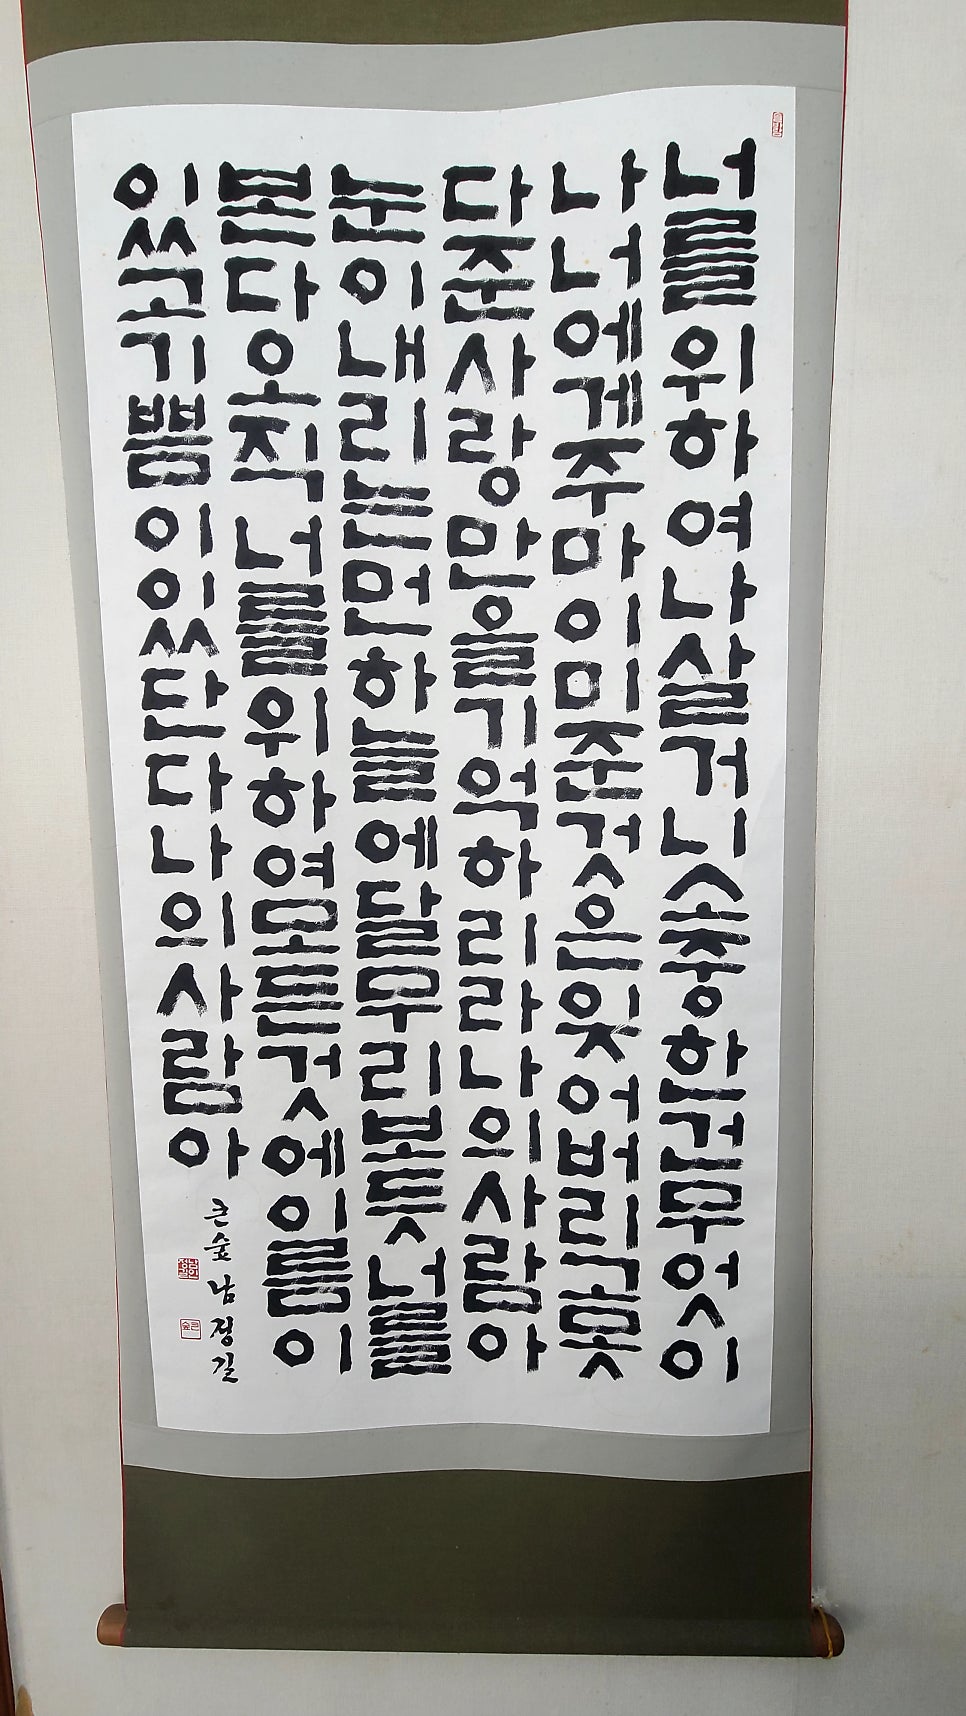 너를위하여나살거니소중한건무엇이
나너에게주마이미준것은잊어버리고못
다준사랑만을기억하리라나의사람아
눈이내리는먼하늘에달무리보듯너를
본다오직너를위하여모든것에이름이
있고기쁨이있단다나의사람아
큰숲남정길